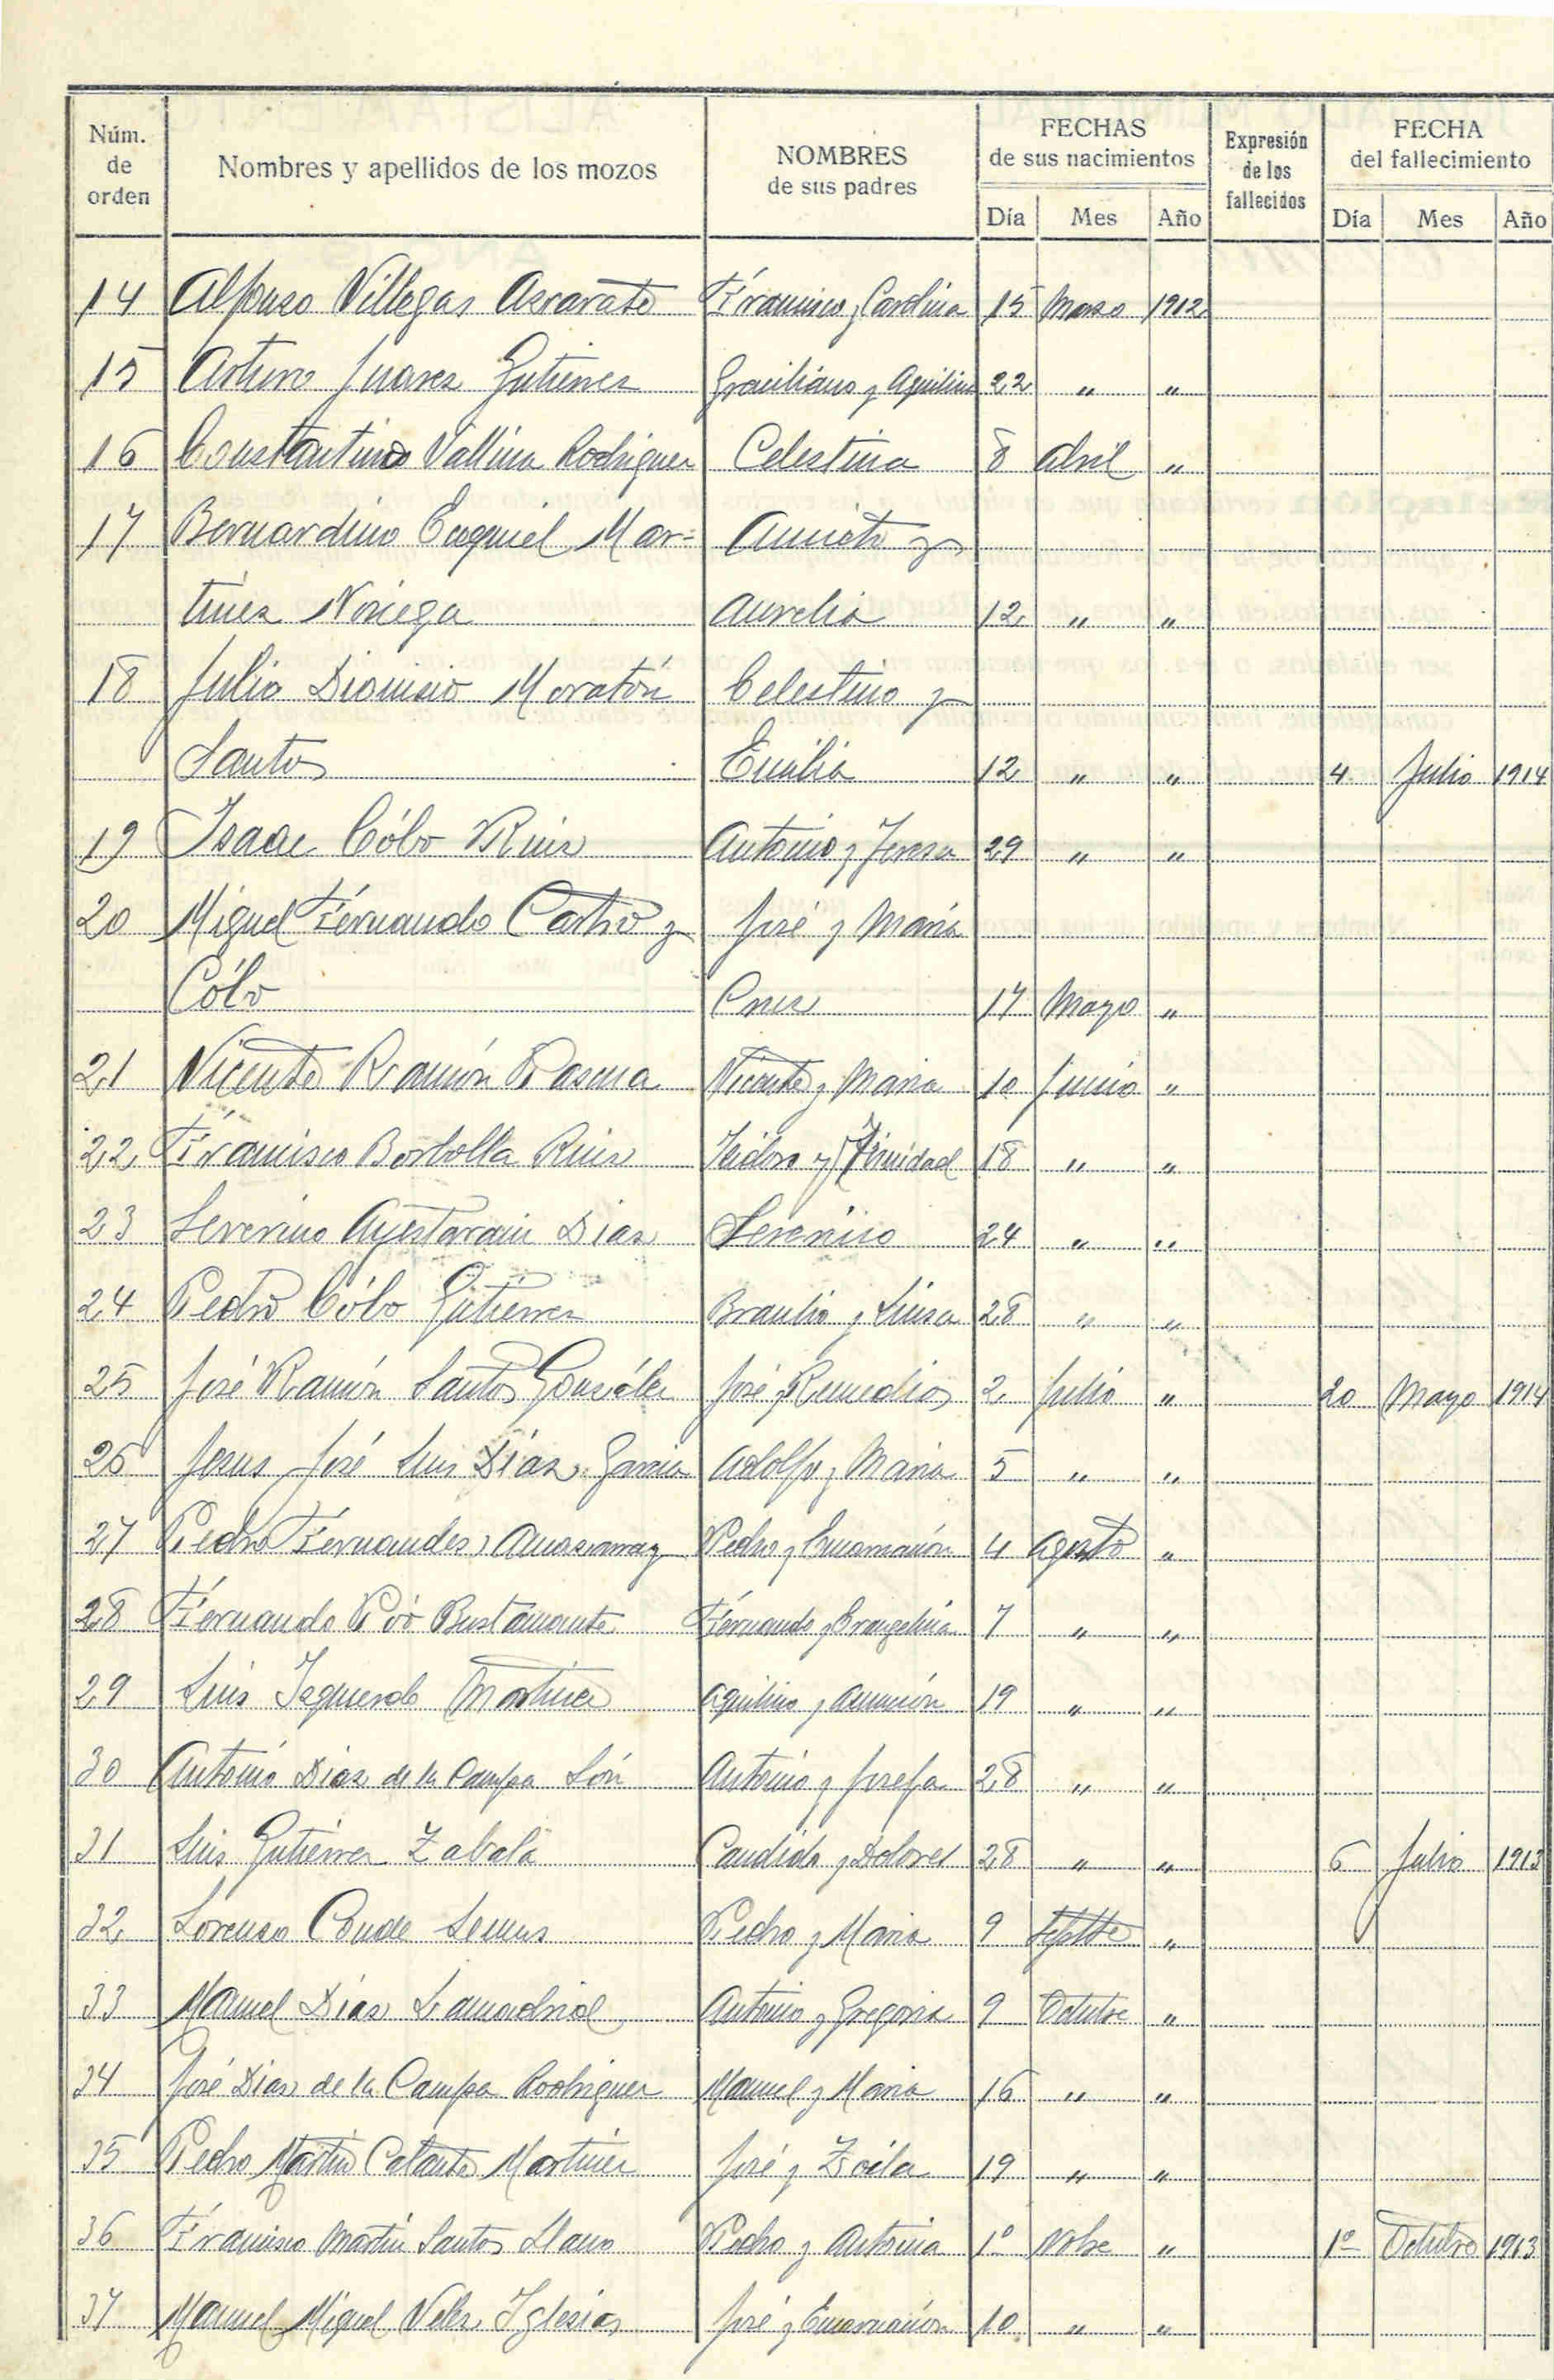 Núm. de orden Nombres y apellidos de los mozos NOMBRES de sus padres FECHAS de sus nacimientos Expresión de los fallecidos FECHA del fallecimiento
Día Mes Año Día Mes Año
14 Alfonso Villegas Ascarate Francisco y Carolina 15 Marzo 1912
15 Arturo Juarez Gutierrez Graciliano y Aquilina 22 " "
16 Constantino Vallina Rodriguez Celestina 8 Abril "
17 Bernardino Ezequiel Mar= Aniceto y
tinez Noriega Aurelia 12 " "
18 Julio Dionisio Moratón Celestino y
Santos Emilia 12 " " 4 Julio 1914
19 Isaac Cóbo Ruiz Antonio y Teresa 29 " "
20 Miguel Fernando Castro y José y María
Cóbo Cruz 17 Mayo "
21 Vicente Ramón Vicente y Maria 10 Junio "
22 Francisco Borbolla Ruiz Isidoro y Trinidad 18 " "
23 Severino Ayestarain Diaz 24 " "
24 Pedro Cóbo Gutierrez Braulio y Luisa 28 " "
25 José Ramón Santos González José y Remedios 2 Julio " 20 Mayo 1914
26 Jesus José Luis Díaz Garcia Adolfo y Maria 5 " "
27 Pedro Fernandez Pedro y 4 Agosto "
28 Fernando Póo Bustamante Fernando y Evangelina 7 " "
29 Luis Izquierdo Martinez Aquilino y Asunción 19 " "
30 Antonio Diaz de la Campa Són Antonio y Josefa 28 " "
31 Luis Gutierrez Zabala Candido y Dolores 28 " " 6 Julio 1913
32 Lorenzo Conde Lemus Pedro y Maria 9 Septbre "
33 Manuel Díaz Lamadrid Antonio y Gregoria 9 Octubre "
34 José Diaz de la Campa Rodriguez Manuel y Maria 16 " "
35 Pedro Martin Martinez José y Zoila 19 " "
36 Francisco Martin Santos Llano Pedro y Antonia 1º Nobre " 1º Octubre 1913
37 Manuel Miguel Velez Iglesias José y Encarnación 10 " "